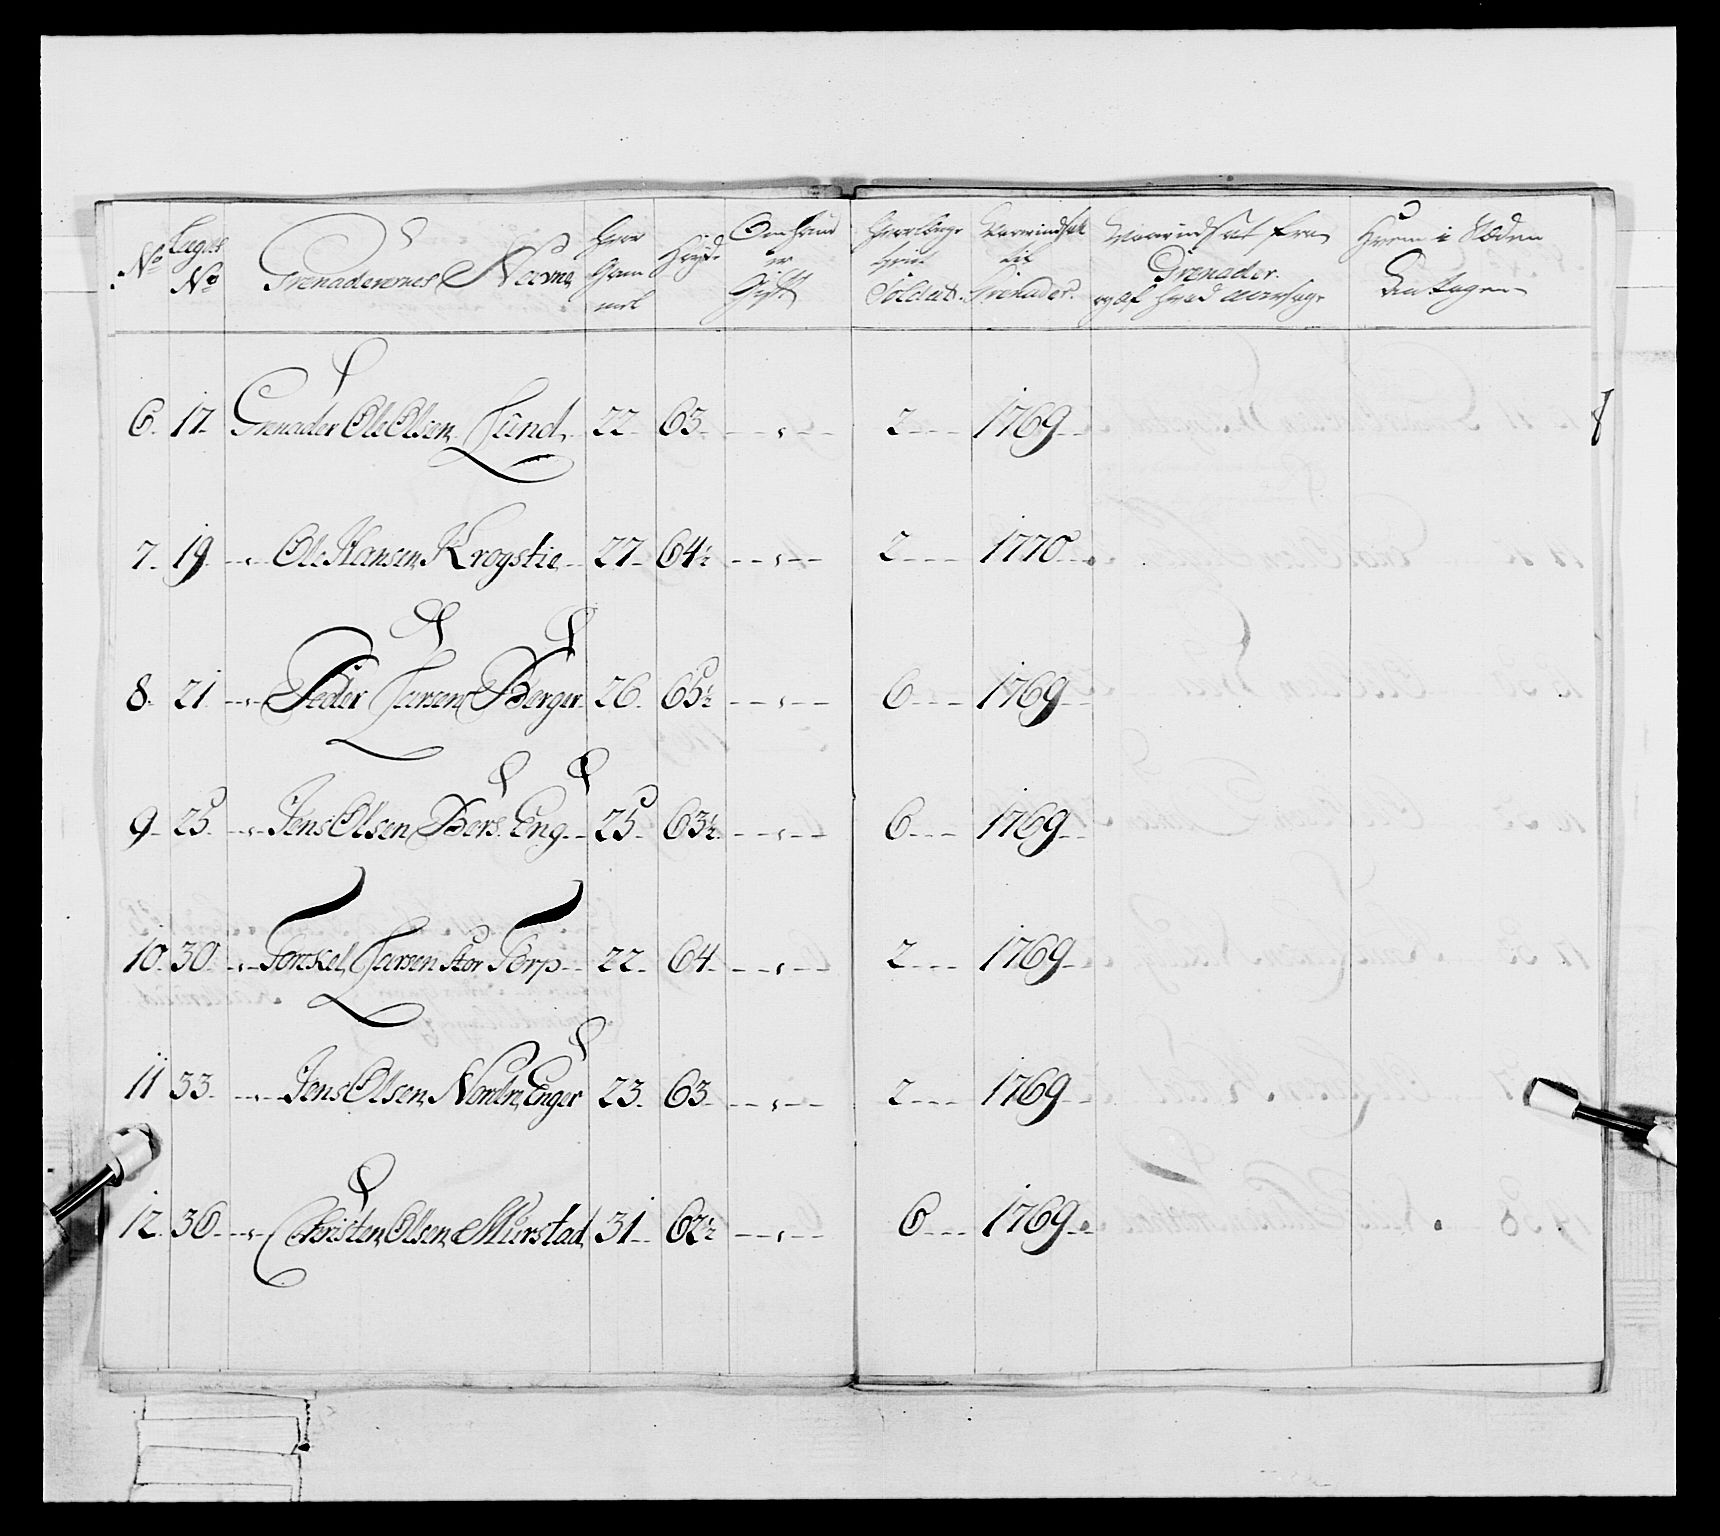 No
Lægds No
Grenaderernes Navne
Hvor Gammel
Höyde
Om hand er Gift
Hvor længe tient Soldat
Grenader.
Grenader.
Hvem i Stæden Antagen
6. 17. Grenader Ole Olsen Lund 22 63 2 1769
7. 19. Ole Hansen Krogstie 27 64½ 2 1770
8. 21. Peder Larsen Berger 26 65½ 6 1769
9. 25. Jens Olsen Bers. Eng 25 63½ 6 1769
10. 30. Torckel Larsen Stor Torp 22 64 2 1769
11 33. Jens Olsen Nordre Enger 23 63 2 1769
12. 36. Christen Olsen Murstad 31 62½ 6 1769